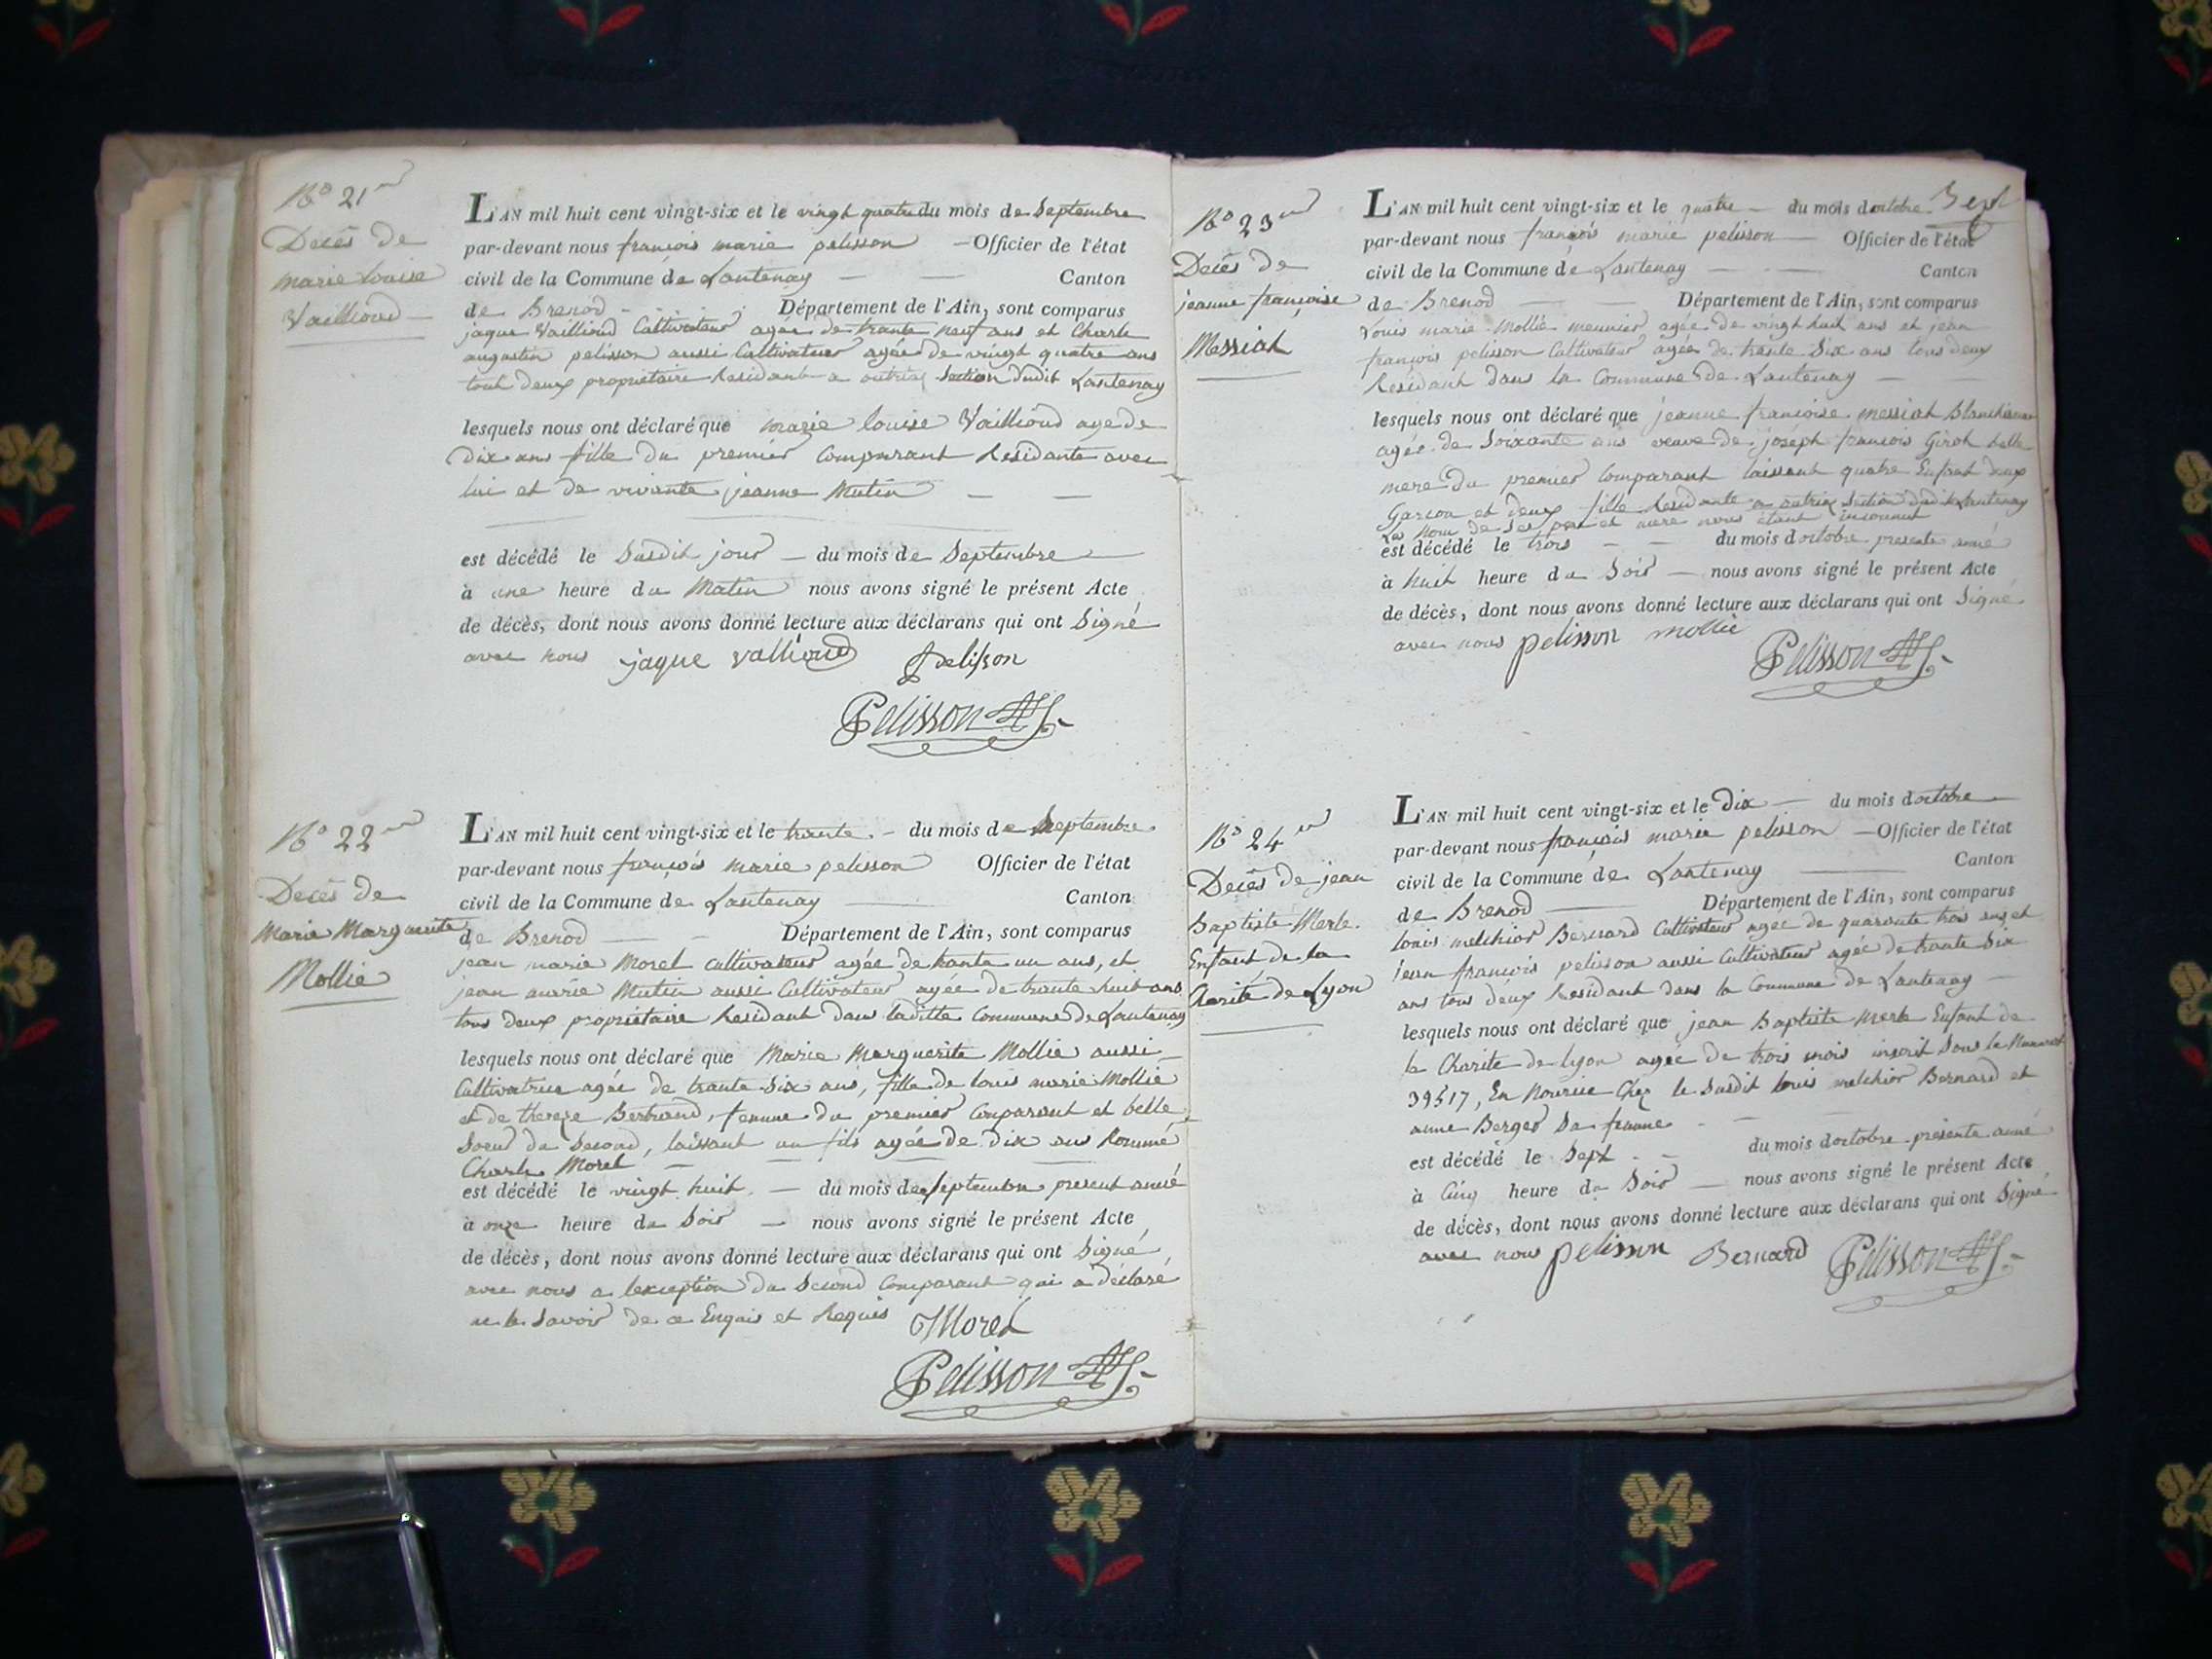 No 21
Decès de
marie Louise
Vaillioud
L'AN mil huit cent vingt-six et le vingt quatre du mois de Septembre
par-devant nous françois marie pelisson — Officier de l'état
civil de la Commune de Lantenay — — Canton
de Brenod - - Département de l'Ain, sont comparus
jaque Vaillioud Cultivateur agée de trante neuf ans et Charle
augustin pelisson aussi Cultivateur agée de vingt quatre ans
tout deux proprietaire Residant a outriaz Section dudit Lantenay
lesquels nous ont déclaré que marie louise Vaillioud age de
Dix ans fille du premier Comparant Residante avec
lui et de vivante jeanne Mutin — —
est décédé le Susdit jour — du mois de Septembre —
à une heure du Matin nous avons signé le présent Acte
de décès, dont nous avons donné lecture aux déclarans qui ont Signé
avec nous jaque vallioud Pelisson
Pelisson
No 22
Decès de
Marie Marguerite
Mollie
L'AN mil huit cent vingt-six et le trante - du mois de Septembre
par-devant nous françois marie pelisson Officier de l'état
civil de la Commune de Lantenay — Canton
de Brenod — - Département de l'Ain, sont comparus
jean marie Morel cultivateur agée de trante un ans, et
jean marie Mutin aussi Cultivateur agée de trante huit ans
tous deux proprietaire Residant dans laditte Commune de Lantenay
lesquels nous ont déclaré que Marie Marguerite Mollie aussi
Cultivatrice agée de trante Six ans, fille de louis marie Mollie
et de thereze Bertrand, femme du premier Comparant et belle
Soeur du Second, laissant un fils agée de dix ans Nommé
Charle Morel — — — —
est décédé le vingt huit — du mois de Septembre present anné
à onze heure du Soir — nous avons signé le présent Acte
de décès, dont nous avons donné lecture aux déclarans qui ont Signé
avec nous a lexception du Second Comparant qui a déclaré
ne le Savoir de ce Enquis et Requis Morel
Pelisson
No 23
Decès de
jeanne françoise
Messiat
Sept
L'AN mil huit cent vingt-six et le quatre — du mois doctobre
par-devant nous françois marie pelisson — Officier de l'état
civil de la Commune de Lantenay — — Canton
de Brenod — — Département de l'Ain, sont comparus
Louis marie Mollie meunier agée de vingt huit ans et jean
françois pelisson Cultivateur agée de trante Six ans tous deux
Residant dans la Commune de Lantenay — —
lesquels nous ont déclaré que jeanne françoise messiat
agée de Soixante ans veuve de joseph françois Girot belle
mere du premier Comparant laissant quatre Enfant deux
Garcon et deux fille Residante a outriaz Section dudit Lantenay
Les Nom de Ses per et mere nous étant inconnut
est décédé le trois - - du mois doctobre presente anné
à huit heure du Soir — nous avons signé le présent Acte
de décès, dont nous avons donné lecture aux déclarans qui ont Signé
avec nous pelisson mollie Pelisson
No 24
Decès de jean
Baptiste Merle
Enfant de la
Charité de Lyon
L'AN mil huit cent vingt-six et le Dix — du mois doctobre —
par-devant nous françois marie pelisson — Officier de l'état
civil de la Commune de Lantenay — Canton
de Brenod — Département de l'Ain, sont comparus
louis melchior Bernard Cultivateur agée de quarante trois ans et
jean françois pelisson aussi Cultivateur agée de trante Six
ans tous deux Residant dans la Commune de Lantenay —
lesquels nous ont déclaré que jean Baptiste Merle Enfant de
la Charite de lyon agée de trois mois inscrit Sous le Numero
39517, En Nourice Chez le Susdit louis melchior Bernard et
anne Berger Sa femme - —
est décédé le Sept - - du mois doctobre présente anné
à Cinq heure du Soir — nous avons signé le présent Acte
de décès, dont nous avons donné lecture aux déclarans qui ont Signé
avec nous pelisson Bernard Pelisson